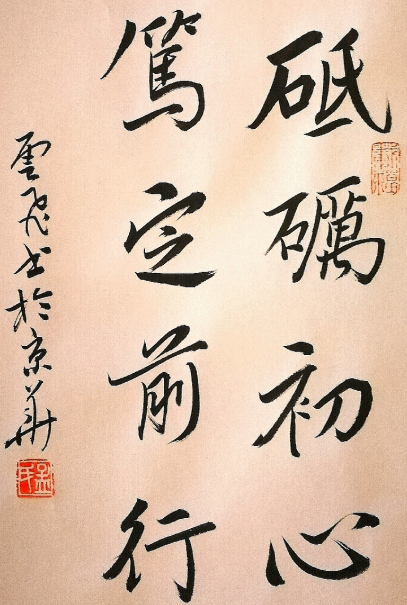 砥礪初心
篤定前行
雲飛書於京華
孟氏